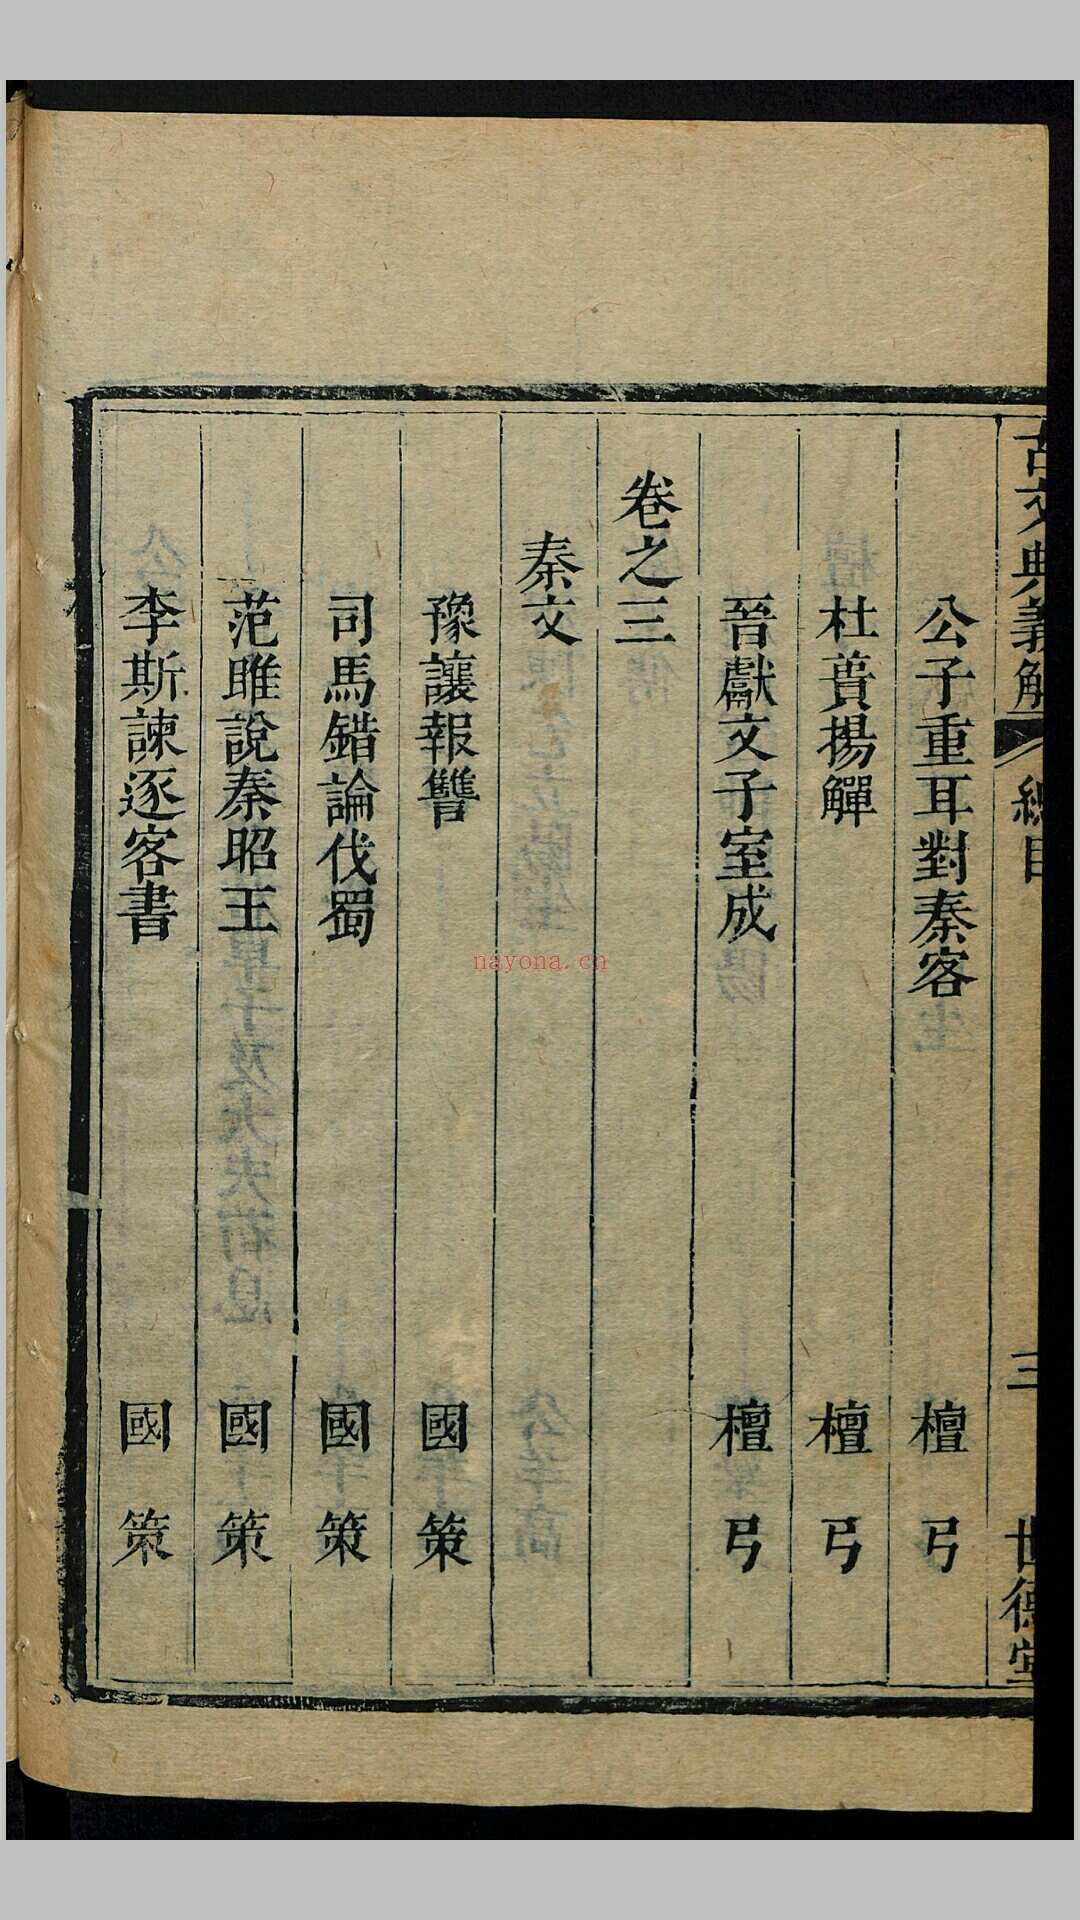 古文典義解 總目 三 世德堂
公子重耳對秦客 檀弓
杜蕢揚觶 檀弓
晉獻文子室成 檀弓
卷之三
秦文
豫讓報讐 國策
司馬錯論伐蜀 國策
范雎說秦昭王 國策
李斯諫逐客書 國策
nayona.cn